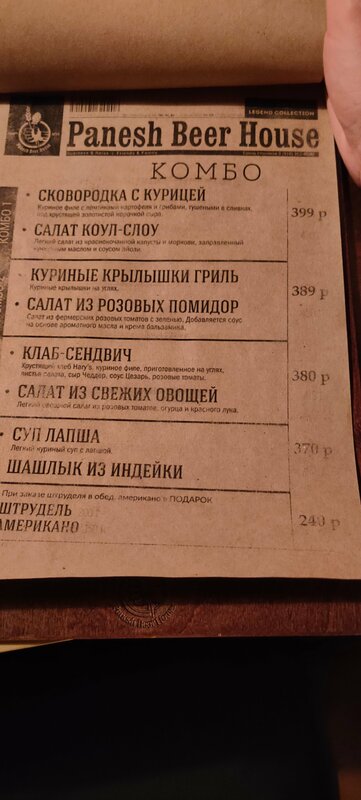 LEGEND COLLECTION
Panesh Beer House
КОМБО
КОМБО 1
• СКОВОРОДКА С КУРИЦЕЙ
Куриное филе с ломтиками картофеля и грибами, тушеными в сливках,
под хрустящей золотистой корочкой сыра.
399 р
• САЛАТ КОУЛ-СЛОУ
Легкий салат из краснокочанной капусты и моркови, заправленный
маслом и соусом айоли.
КУРИНЫЕ КРЫЛЫШКИ ГРИЛЬ
Куриные крылышки на углях.
389 р
• САЛАТ ИЗ РОЗОВЫХ ПОМИДОР
Салат из фермерских розовых томатов с зеленью. Добавляется соус
на основе ароматного масла и крема бальзамика.
• КЛАБ-СЕНДВИЧ
Хрустящий хлеб Hary's, куриное филе, приготовленное на углях,
листья салата, сыр Чеддер, соус Цезарь, розовые томаты.
380 р
• САЛАТ ИЗ СВЕЖИХ ОВОЩЕЙ
Легкий овощной салат из розовых томатов, огурца и красного лука.
• СУП ЛАПША
Легкий куриный суп с лапшой.
370 р
ШАШЛЫК ИЗ ИНДЕЙКИ
При заказе штруделя в обед, американо в ПОДАРОК
ШТРУДЕЛЬ
АМЕРИКАНО
240 р